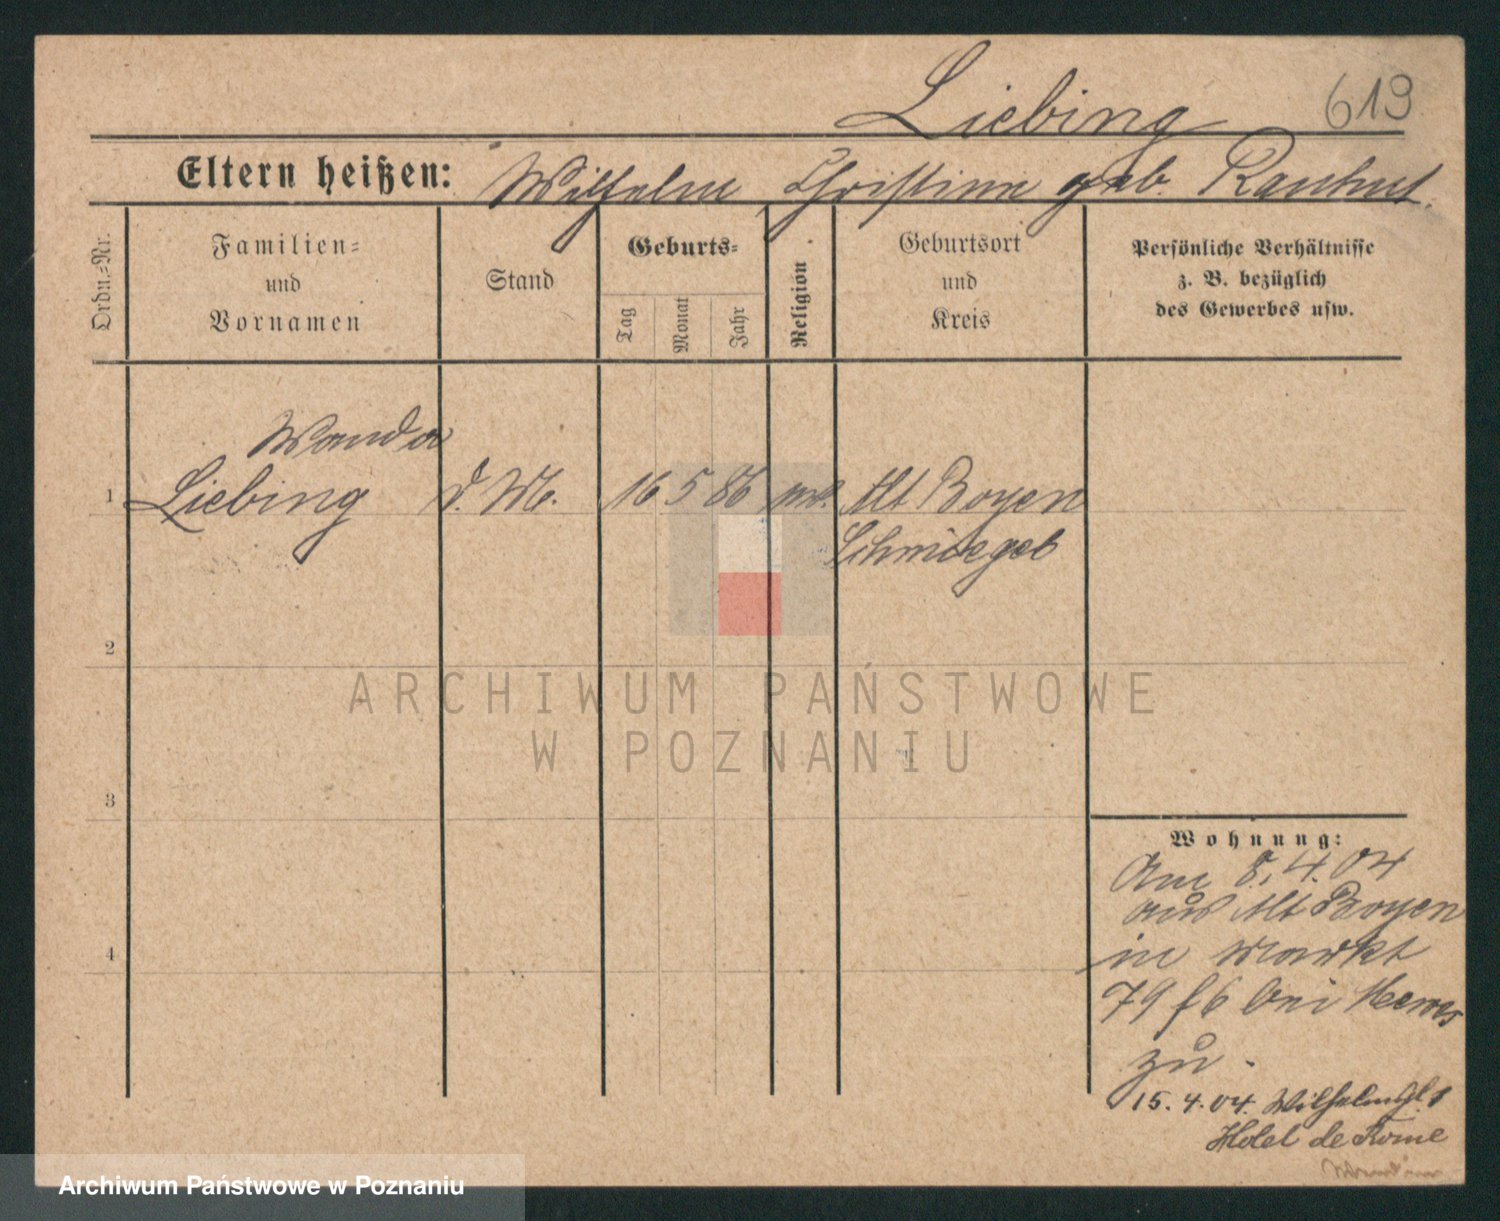 Liebing 619
Eltern heißen: Wilhelm Christine geb. Rauhut.
Ordn.=Nr.
Familien=
und
Vornamen
Stand
Geburts=
Tag
Monat
Jahr
Religion
Geburtsort
und
Kreis
Persönliche Verhältnisse
z. B. bezüglich
des Gewerbes usw.
Wanda
1 Liebing d. M. 16 5 86 Alt Boyen
Schmiegel
2
ARCHIWUM PAŃSTWOWE
W POZNANIU
3
4
Wohnung:
Am 8.4.04
aus Alt Boyen
in Markt
79 bei
zu.
15.4.04. Wilhelmpl. 1
Hotel de Rome
Archiwum Państwowe w Poznaniu